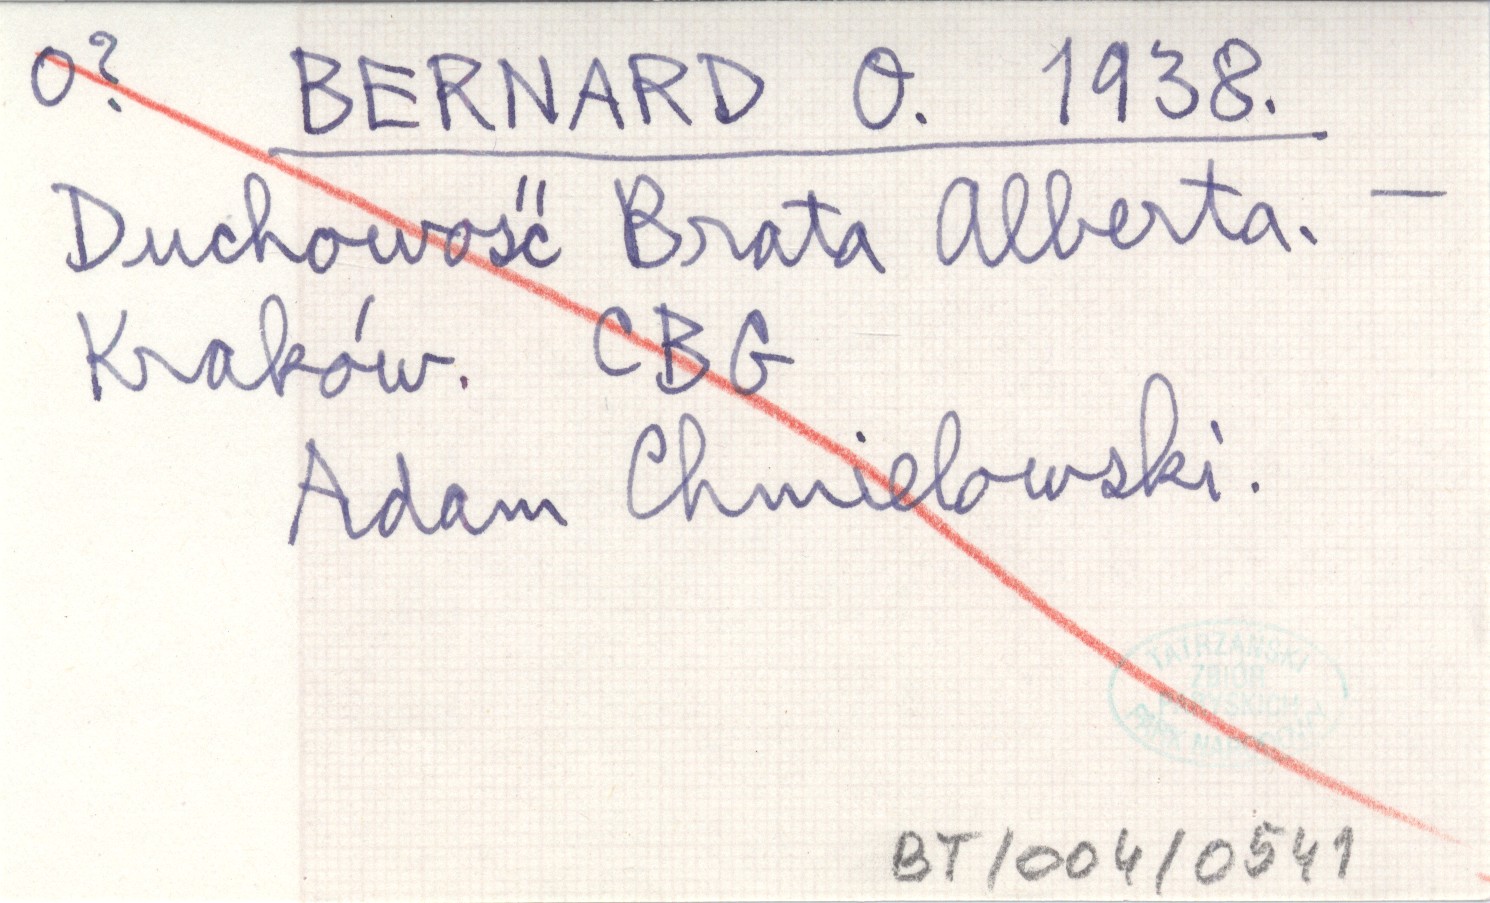 O? BERNARD O. 1938.
Duchowość Brata Alberta. —
Kraków. CBG
Adam Chmielowski.
TATRZAŃSKI
ZBIÓR
PARYSKICH
PARK NARODOWY
BT/004/0541